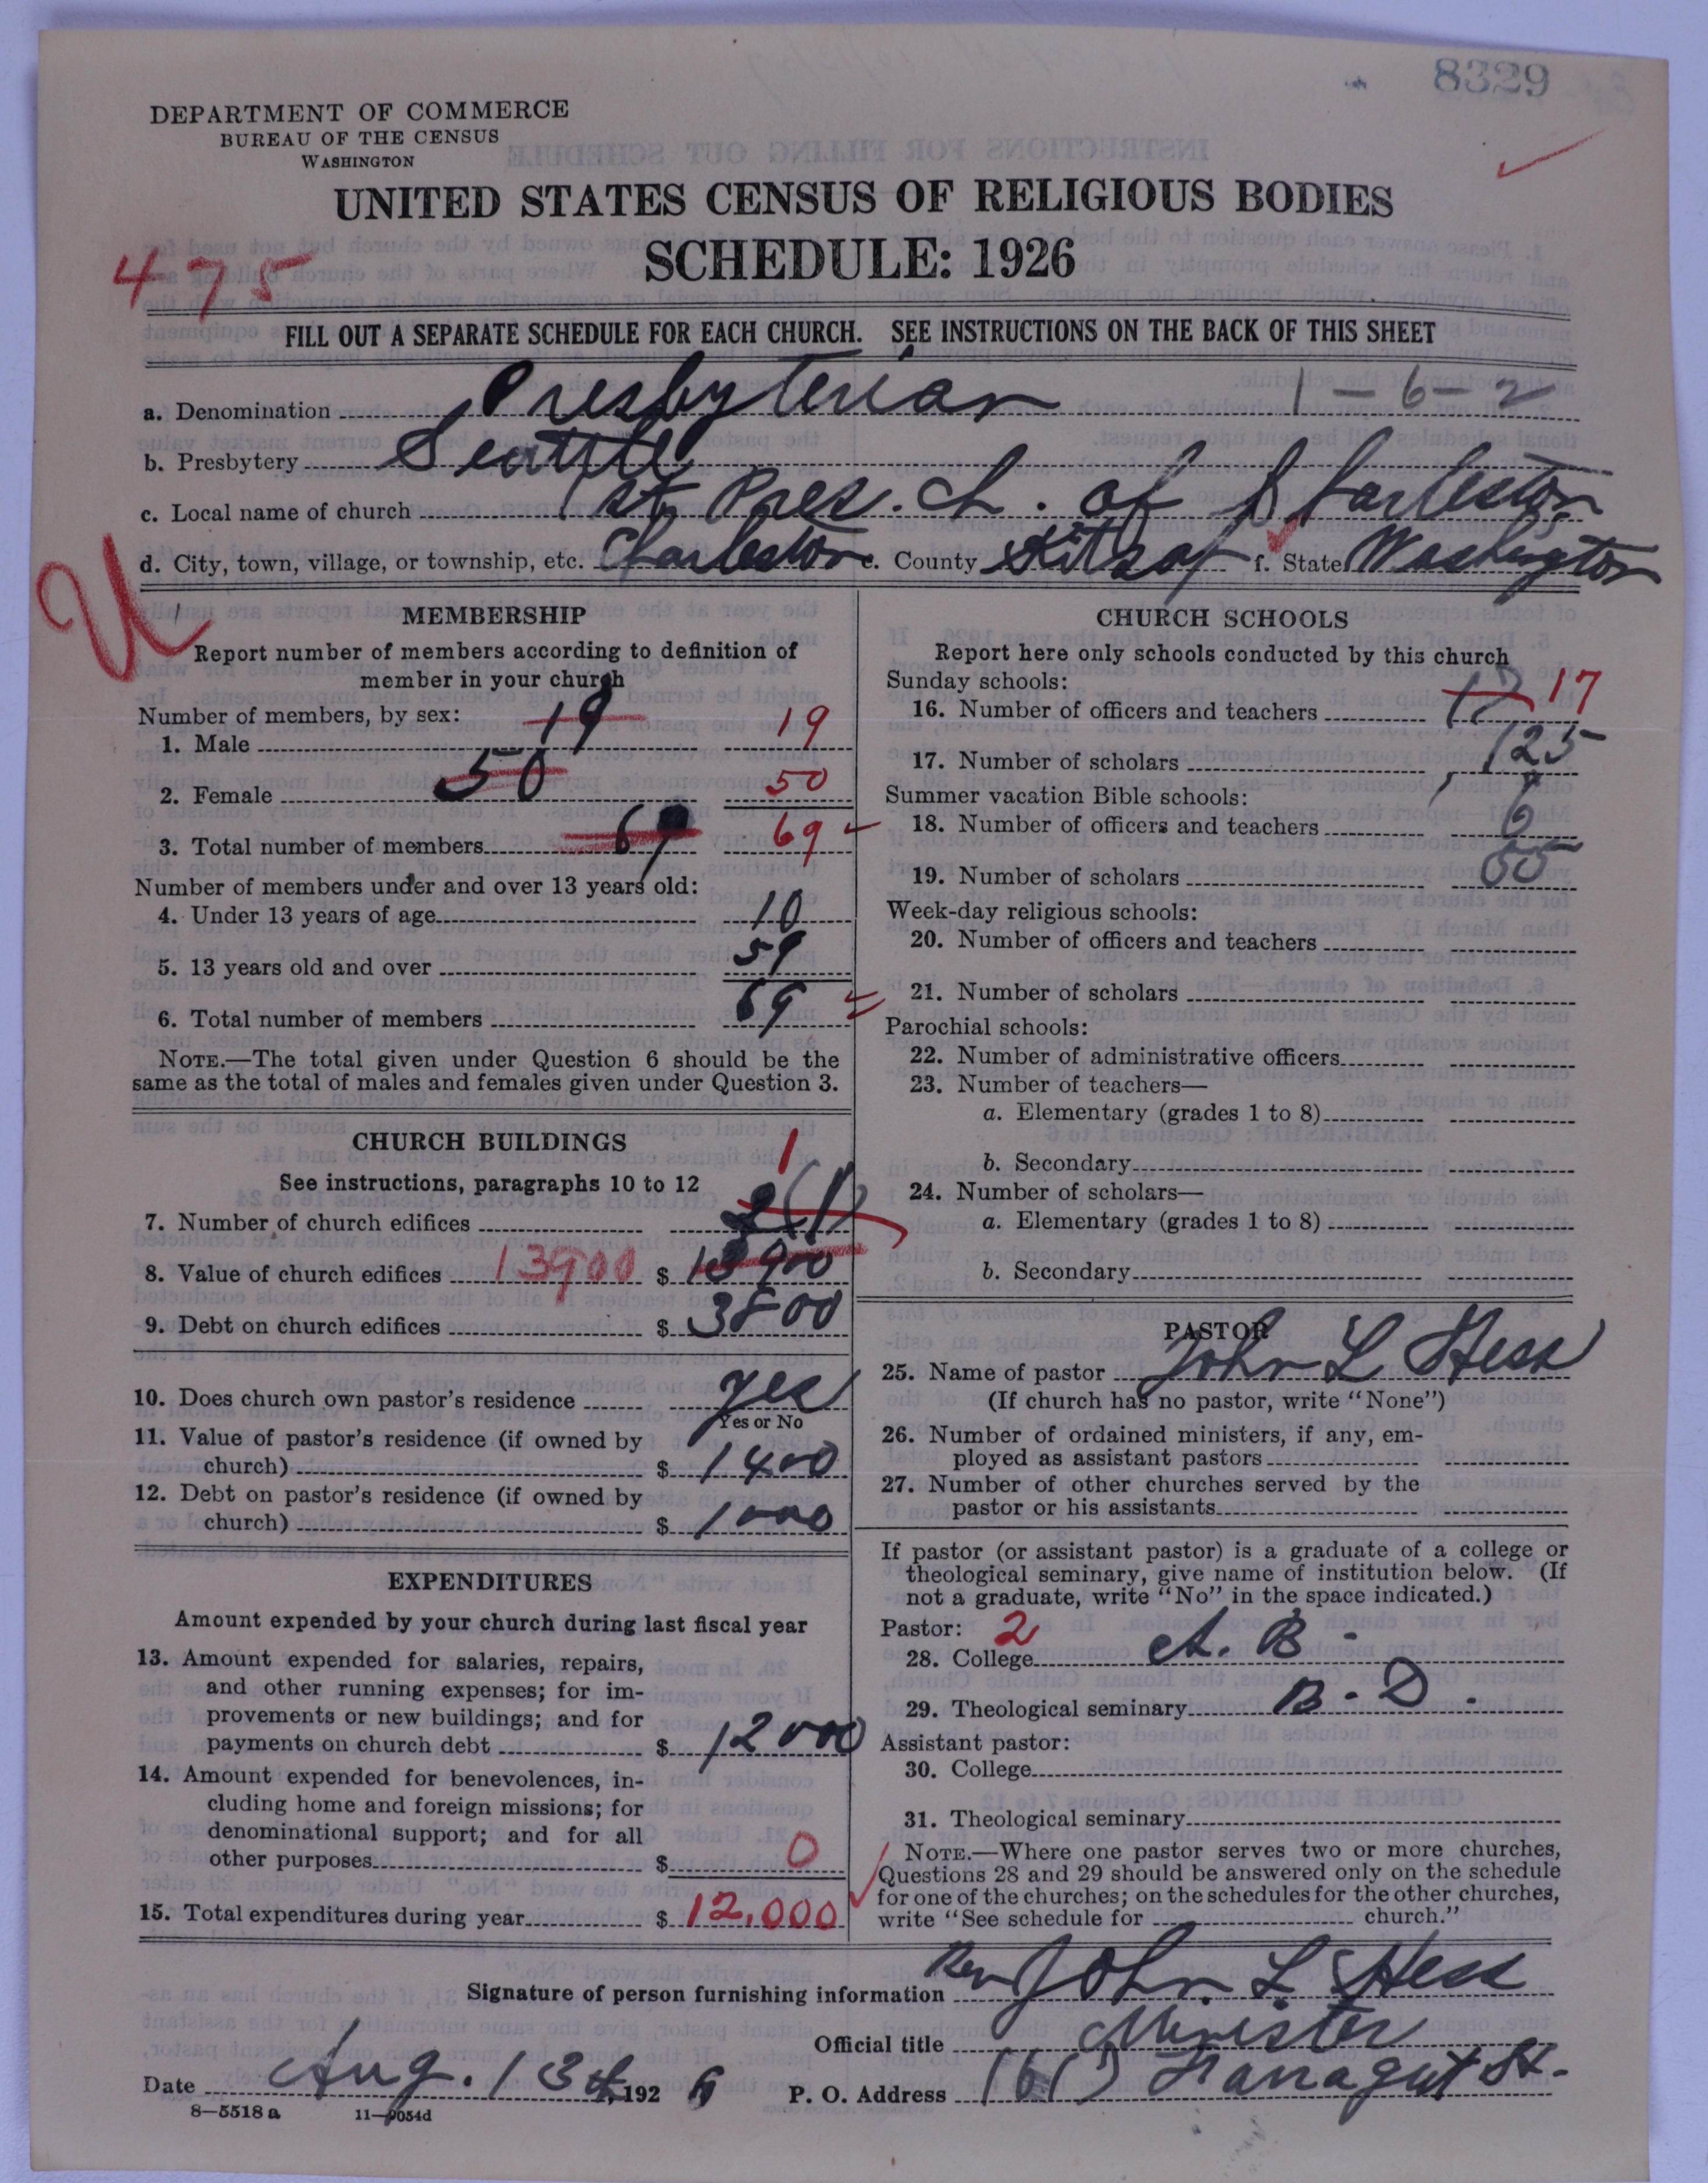 8329
DEPARTMENT OF COMMERCE
BUREAU OF THE CENSUS
WASHINGTON
UNITED STATES CENSUS OF RELIGIOUS BODIES
SCHEDULE: 1926
475
FILL OUT A SEPARATE SCHEDULE FOR EACH CHURCH. SEE INSTRUCTIONS ON THE BACK OF THIS SHEET
a. Denomination Presbyterian 1-6-2
b. Presbytery Seattle
c. Local name of church 1st Pres. Ch. of Charleston
d. City, town, village, or township, etc. Charleston e. County Kitsap f. State Washington
U
MEMBERSHIP
Report number of members according to definition of
member in your church
Number of members, by sex:
1. Male 19 19
2. Female 50 50
3. Total number of members 69 69
Number of members under and over 13 years old:
4. Under 13 years of age 10
5. 13 years old and over 59
6. Total number of members 69
NOTE.—The total given under Question 6 should be the
same as the total of males and females given under Question 3.
CHURCH BUILDINGS
See instructions, paragraphs 10 to 12
1
7. Number of church edifices 2(1)
8. Value of church edifices 13900 $ 13900
9. Debt on church edifices $ 3800
10. Does church own pastor's residence yes
Yes or No
11. Value of pastor's residence (if owned by
church) $ 1400
12. Debt on pastor's residence (if owned by
church) $ 1000
EXPENDITURES
Amount expended by your church during last fiscal year
13. Amount expended for salaries, repairs,
and other running expenses; for im-
provements or new buildings; and for
payments on church debt $ 12000
14. Amount expended for benevolences, in-
cluding home and foreign missions; for
denominational support; and for all
other purposes $ 0
15. Total expenditures during year $ 12,000
CHURCH SCHOOLS
Report here only schools conducted by this church
Sunday schools:
16. Number of officers and teachers 17 17
17. Number of scholars 125
Summer vacation Bible schools:
18. Number of officers and teachers 6
19. Number of scholars 55
Week-day religious schools:
20. Number of officers and teachers
21. Number of scholars
Parochial schools:
22. Number of administrative officers
23. Number of teachers—
a. Elementary (grades 1 to 8)
b. Secondary
24. Number of scholars—
a. Elementary (grades 1 to 8)
b. Secondary
PASTOR
25. Name of pastor John L Hess
(If church has no pastor, write "None")
26. Number of ordained ministers, if any, em-
ployed as assistant pastors
27. Number of other churches served by the
pastor or his assistants
If pastor (or assistant pastor) is a graduate of a college or
theological seminary, give name of institution below. (If
not a graduate, write "No" in the space indicated.)
Pastor: 2
28. College A. B.
29. Theological seminary B. D.
Assistant pastor:
30. College
31. Theological seminary
NOTE.—Where one pastor serves two or more churches,
Questions 28 and 29 should be answered only on the schedule
for one of the churches; on the schedules for the other churches,
write "See schedule for church."
Signature of person furnishing information Rev John L. Hess
Official title Minister
Date Aug. 13th, 192 P. O. Address Farragut St.
8—5518 a 11—9054d